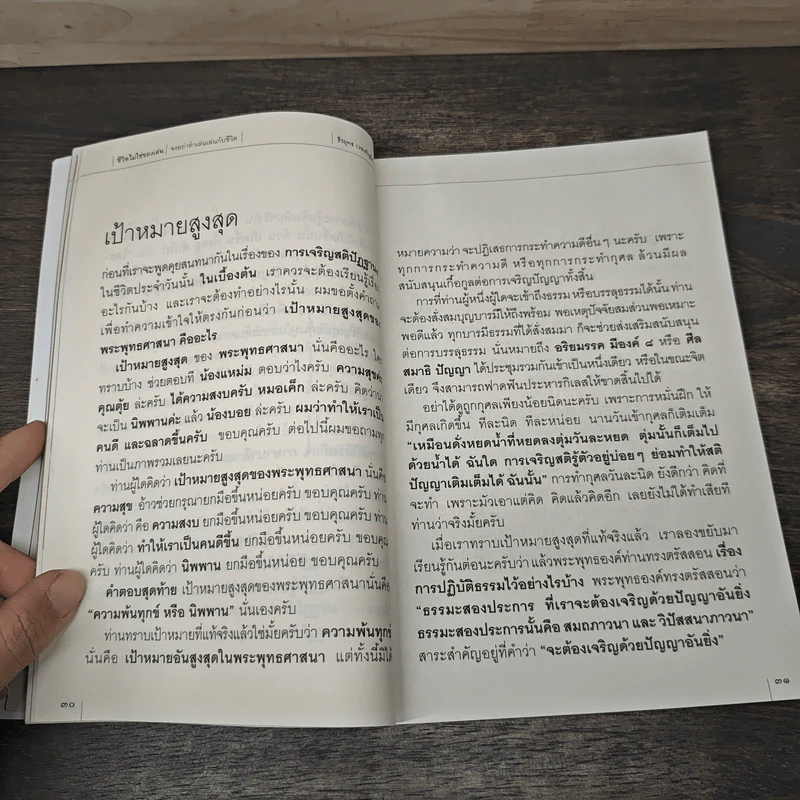 ชีวิตไม่ใช่ของเล่น | จงอย่าทำเล่นเล่นกับชีวิต
เป้าหมายสูงสุด
ก่อนที่เราจะพูดคุยสนทนากันในเรื่องของ การเจริญสติปัฏฐาน
ในชีวิตประจำวันนั้น ในเบื้องต้น เราควรจะต้องเรียนรู้เรื่อง
อะไรกันบ้าง และเราจะต้องทำอย่างไรนั้น ผมขอตั้งคำถาม
เพื่อทำความเข้าใจให้ตรงกันก่อนว่า เป้าหมายสูงสุดของ
พระพุทธศาสนา คืออะไร
เป้าหมายสูงสุด ของ พระพุทธศาสนา นั่นคืออะไร ใคร
ทราบบ้าง ช่วยตอบที น้องแหม่ม ตอบว่าไงครับ ความสุขค่ะ
คุณตุ้ย ล่ะครับ ได้ความสงบครับ หมอเด็ก ล่ะครับ คิดว่าน่า
จะเป็น นิพพานค่ะ แล้ว น้องบอย ล่ะครับ ผมว่าทำให้เราเป็น
คนดี และฉลาดขึ้นครับ ขอบคุณครับ ต่อไปนี้ผมขอถามทุก
ท่านเป็นภาพรวมเลยนะครับ
ท่านผู้ใดคิดว่า เป้าหมายสูงสุดของพระพุทธศาสนา นั่นคือ
ความสุข อ้าวช่วยกรุณายกมือขึ้นหน่อยครับ ขอบคุณครับ ท่าน
ผู้ใดคิดว่า คือ ความสงบ ยกมือขึ้นหน่อยครับ ขอบคุณครับ ท่าน
ผู้ใดคิดว่า ทำให้เราเป็นคนดีขึ้น ยกมือขึ้นหน่อยครับ ขอบคุณ
ครับ ท่านผู้ใดคิดว่า นิพพาน ยกมือขึ้นหน่อย ขอบคุณครับ
คำตอบสุดท้าย เป้าหมายสูงสุดของพระพุทธศาสนานั่นคือ
“ความพ้นทุกข์ หรือ นิพพาน” นั่นเองครับ
ท่านทราบเป้าหมายที่แท้จริงแล้วใช่มั้ยครับว่า ความพ้นทุกข์
นั่นคือ เป้าหมายอันสูงสุดในพระพุทธศาสนา แต่ทั้งนี้มิได้
๓๐
หมายความว่า จะปฏิเสธการกระทำความดีอื่นๆ นะครับ เพราะ
ทุกการกระทำความดี หรือทุกการกระทำกุศล ล้วนมีผล
สนับสนุนเกื้อกูลต่อการเจริญปัญญาทั้งสิ้น
การที่ท่านผู้หนึ่งผู้ใดจะเข้าถึงธรรม หรือบรรลุธรรมได้นั้น ท่าน
จะต้องสั่งสมบุญบารมีให้ถึงพร้อม พอเหตุปัจจัยสมส่วนพอเหมาะ
พอดีแล้ว ทุกบารมีธรรมที่ได้สั่งสมมา ก็จะช่วยส่งเสริมสนับสนุน
ต่อการบรรลุธรรม นั่นหมายถึง อริยมรรค มีองค์ ๘ หรือ ศีล
สมาธิ ปัญญา ได้ประชุมรวมกันเข้าเป็นหนึ่งเดียว หรือในขณะจิต
เดียว จึงสามารถฟาดฟันประหารกิเลสให้ขาดสิ้นไปได้
อย่าได้ดูถูกกุศลเพียงน้อยนิดนะครับ เพราะการหมั่นฝึก ให้
มีกุศลเกิดขึ้น ทีละนิด ทีละหน่อย นานวันเข้ากุศลก็เติมเต็ม
“เหมือนดั่งหยดน้ำที่หยดลงตุ่มวันละหยด ตุ่มนั้นก็เต็มไป
ด้วยน้ำได้ ฉันใด การเจริญสติรู้ตัวอยู่บ่อยๆ ย่อมทำให้สติ
ปัญญาเติมเต็มได้ ฉันนั้น” การทำกุศลวันละนิด ยังดีกว่า คิดที่
จะทำ เพราะมัวเอาแต่คิด คิดแล้วคิดอีก เลยยังไม่ได้ทำเสียที
ท่านว่าจริงมั้ยครับ
เมื่อเราทราบเป้าหมายสูงสุดที่แท้จริงแล้ว เราลองขยับมา
เรียนรู้กันต่อนะครับว่า แล้วพระพุทธองค์ท่านทรงตรัสสอน เรื่อง
การปฏิบัติธรรมไว้อย่างไรบ้าง พระพุทธองค์ทรงตรัสสอนว่า
“ธรรมะสองประการ ที่เราจะต้องเจริญด้วยปัญญาอันยิ่ง
ธรรมะสองประการนั้นคือ สมถภาวนา และ วิปัสสนาภาวนา”
สาระสำคัญอยู่ที่คำว่า “จะต้องเจริญด้วยปัญญาอันยิ่ง”
๓๑